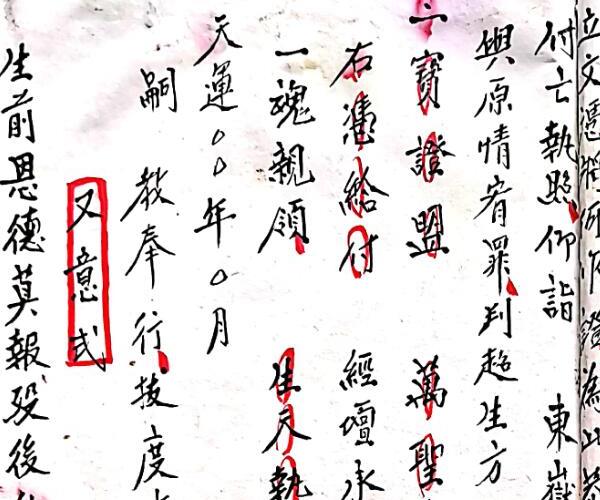 立文憑
付亡執照仰詣 東嶽
與原情宥罪判超生方
寶證盟 萬聖
右憑給付 經壇永
一魂親領 生天執
天運○○年○月
嗣 教奉行拔度
又意式
生前恩德莫報歿後